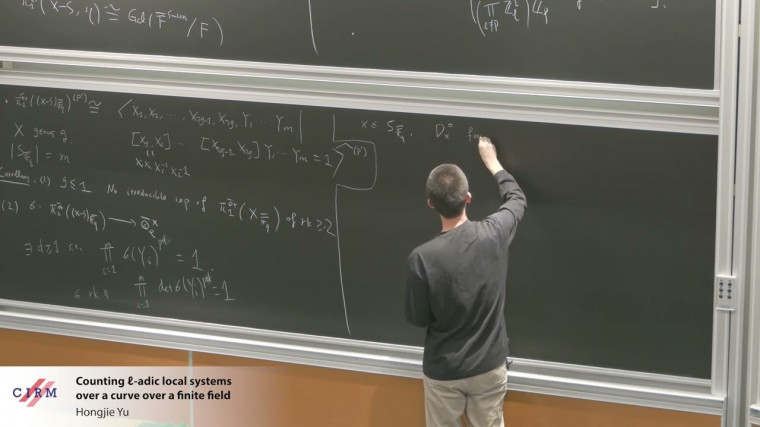 (X-S, η) ≅ Gal(F̄^{S-un}/F)
((∏_{ℓ≠p} Z_ℓ^×) Q_p
π_1^{ét}((X-S)_{\bar{F}_q})^{(p')} ≅ ⟨ X_1, X_2, ..., X_{2g-1}, X_{2g}, Y_1 ... Y_m |
X genus g.
[X_1, X_2] ... [X_{2g-1} X_{2g}] Y_1 ... Y_m = 1 ⟩^{(p')}
|S_{\bar{F}_q}| = m
X_1 X_2 X_1^{-1} X_2^{-1}
(1) g ≤ 1 No irreducible rep of π_1^{ét}(X_{\bar{F}_q}) of rk ≥ 2
(2) σ: π_1^{ét}((X-S)_{\bar{F}_q}) → \bar{Q}_ℓ^×
∃ d ≥ 1 s.t. ∏_{i=1} σ(Y_i)^{pd} = 1
σ rk n ∏_{i=1} det σ(Y_i)^{pd} = 1
x ∈ S_{\bar{F}_q}. D_x^*
CIRM
Counting ℓ-adic local systems
over a curve over a finite field
Hongjie Yu